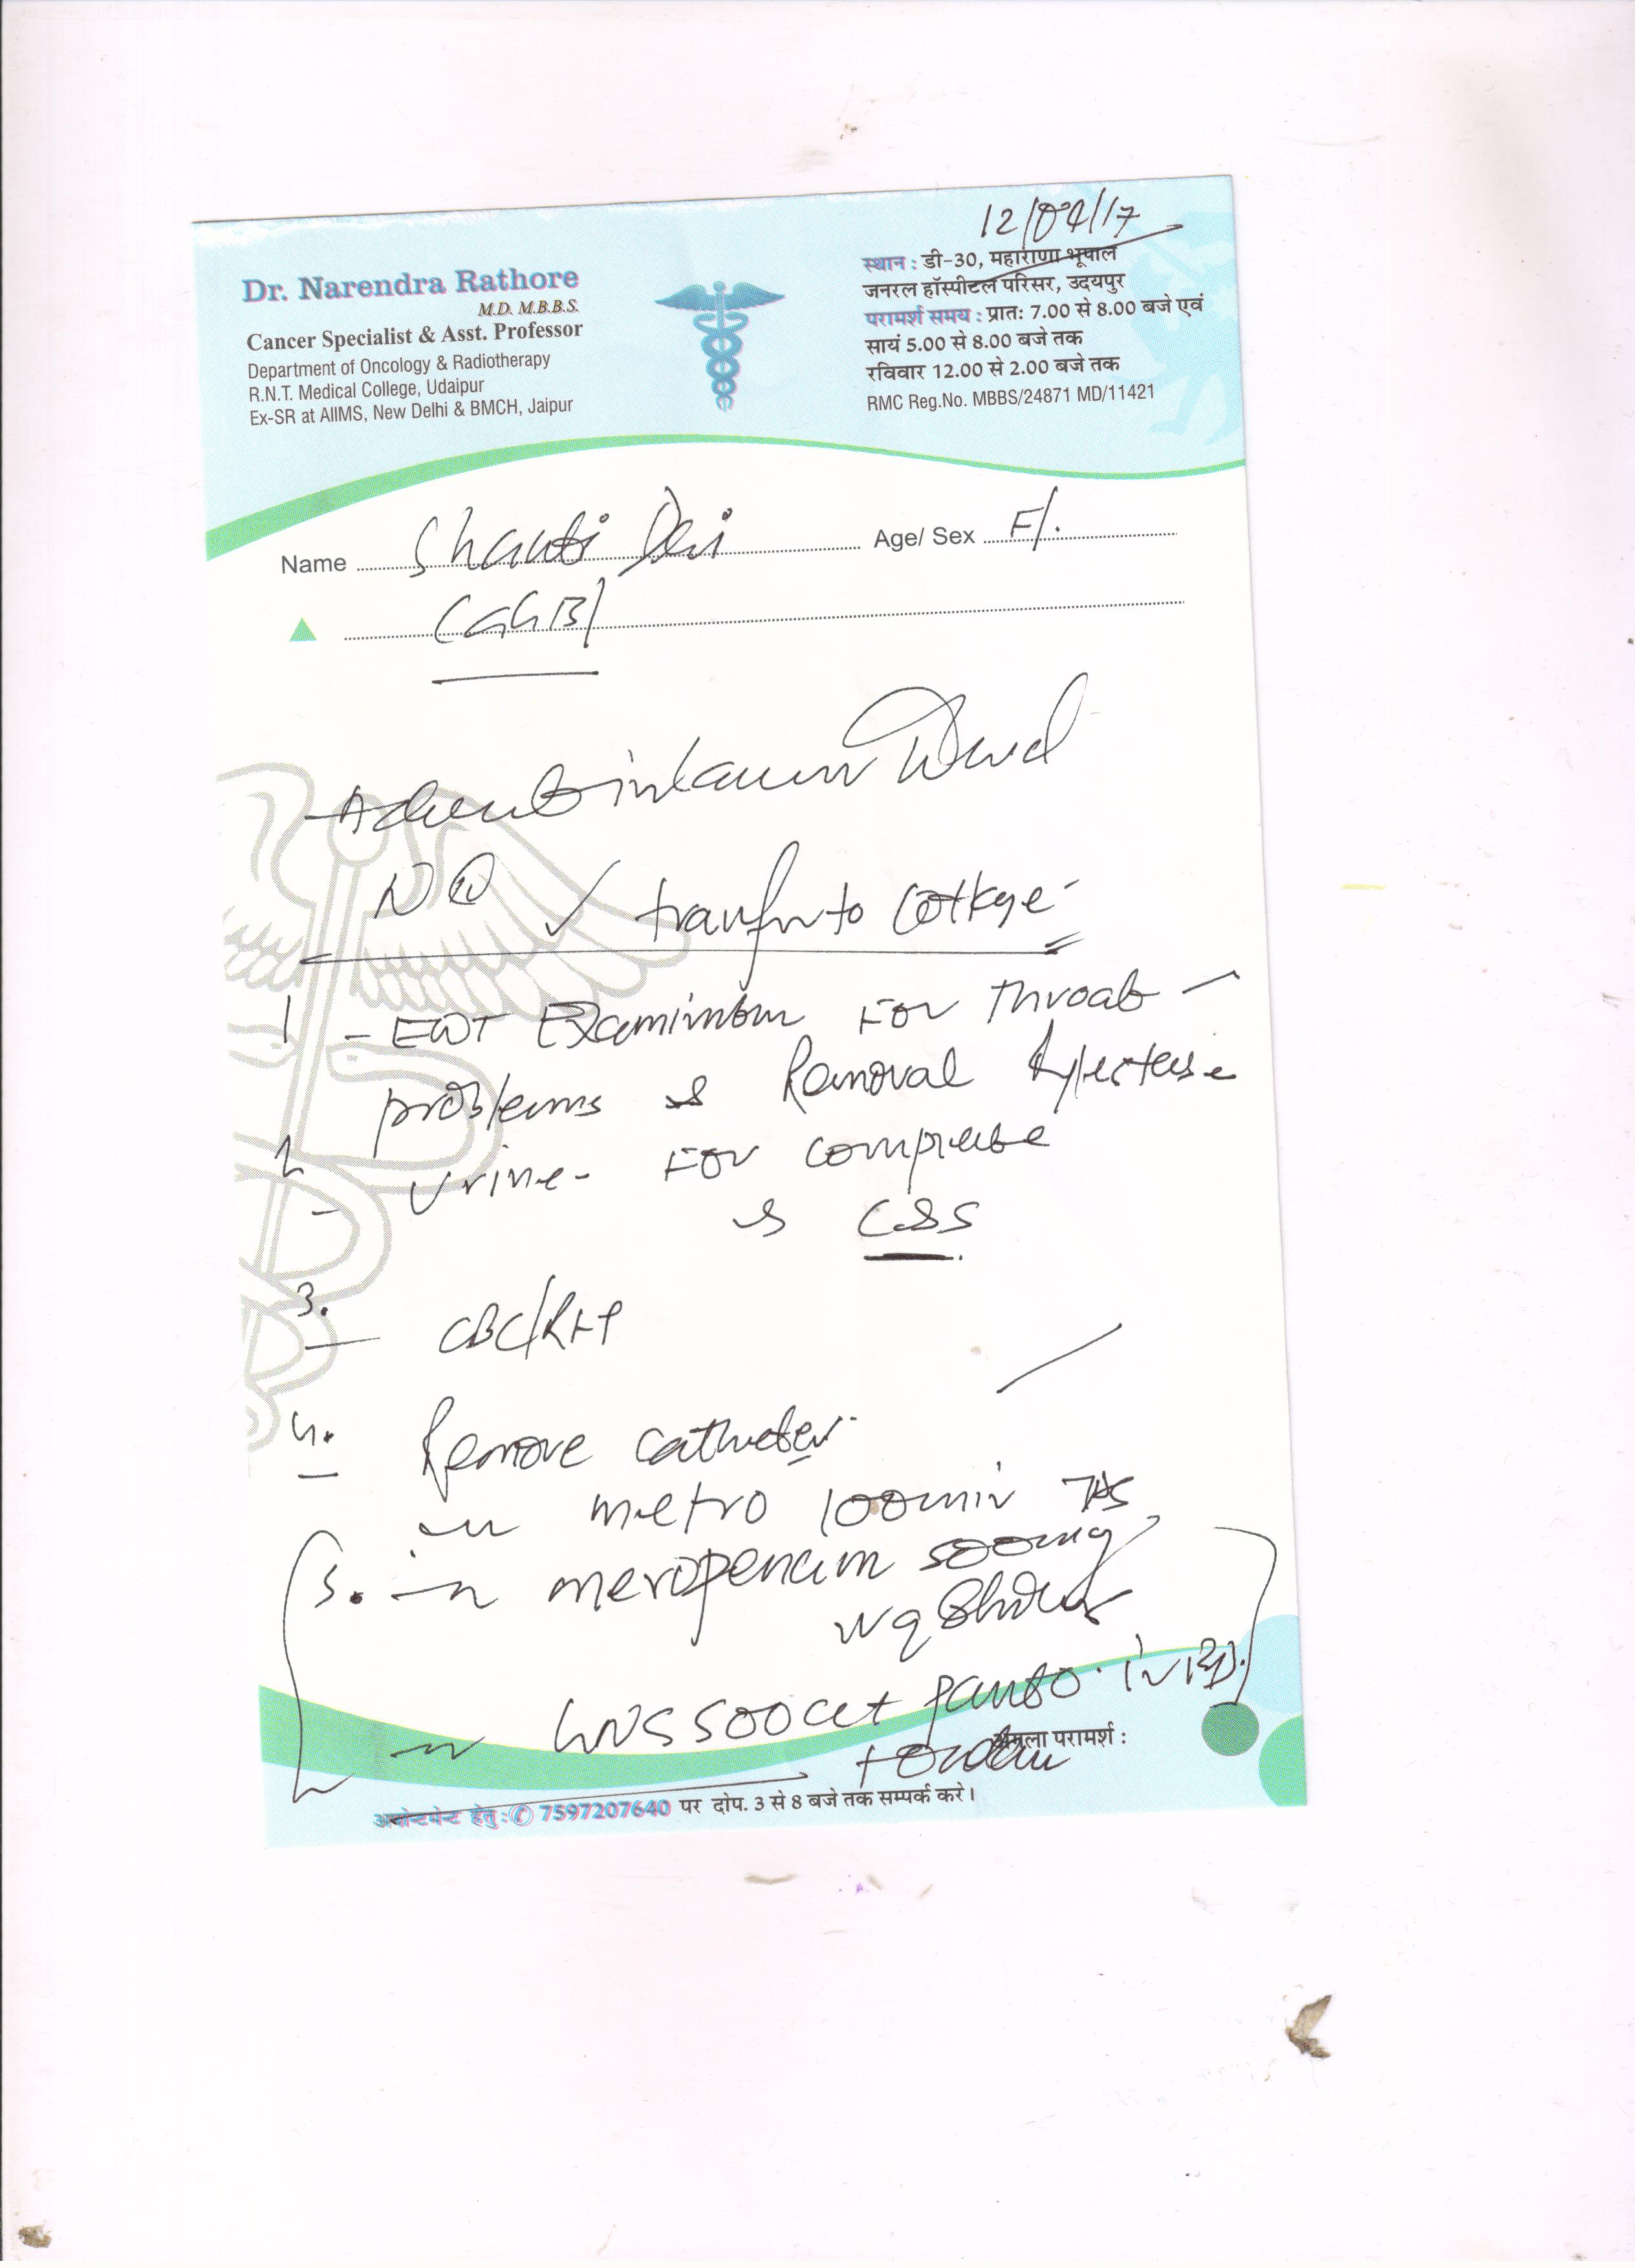 12/04/17
Dr. Narendra Rathore
M.D. M.B.B.S.
Cancer Specialist & Asst. Professor
Department of Oncology & Radiotherapy
R.N.T. Medical College, Udaipur
Ex-SR at AIIMS, New Delhi & BMCH, Jaipur
स्थान : डी-30, महाराणा भूपाल
जनरल हॉस्पीटल परिसर, उदयपुर
परामर्श समय : प्रातः 7.00 से 8.00 बजे एवं
सायं 5.00 से 8.00 बजे तक
रविवार 12.00 से 2.00 बजे तक
RMC Reg.No. MBBS/24871 MD/11421
Name Shanti Devi Age/ Sex F/.
in
to
1 - Examination For Throat
problems & Removal
2 Urine - For complete
& C&S
3. CBC/RFT
4. Remove catheter
metro 100ml iv TDS
5. meropenem 500mg
500 panto iv BD.
अगला परामर्श :
अपोन्टमेन्ट हेतु : 7597207640 पर दोप. 3 से 8 बजे तक सम्पर्क करे।